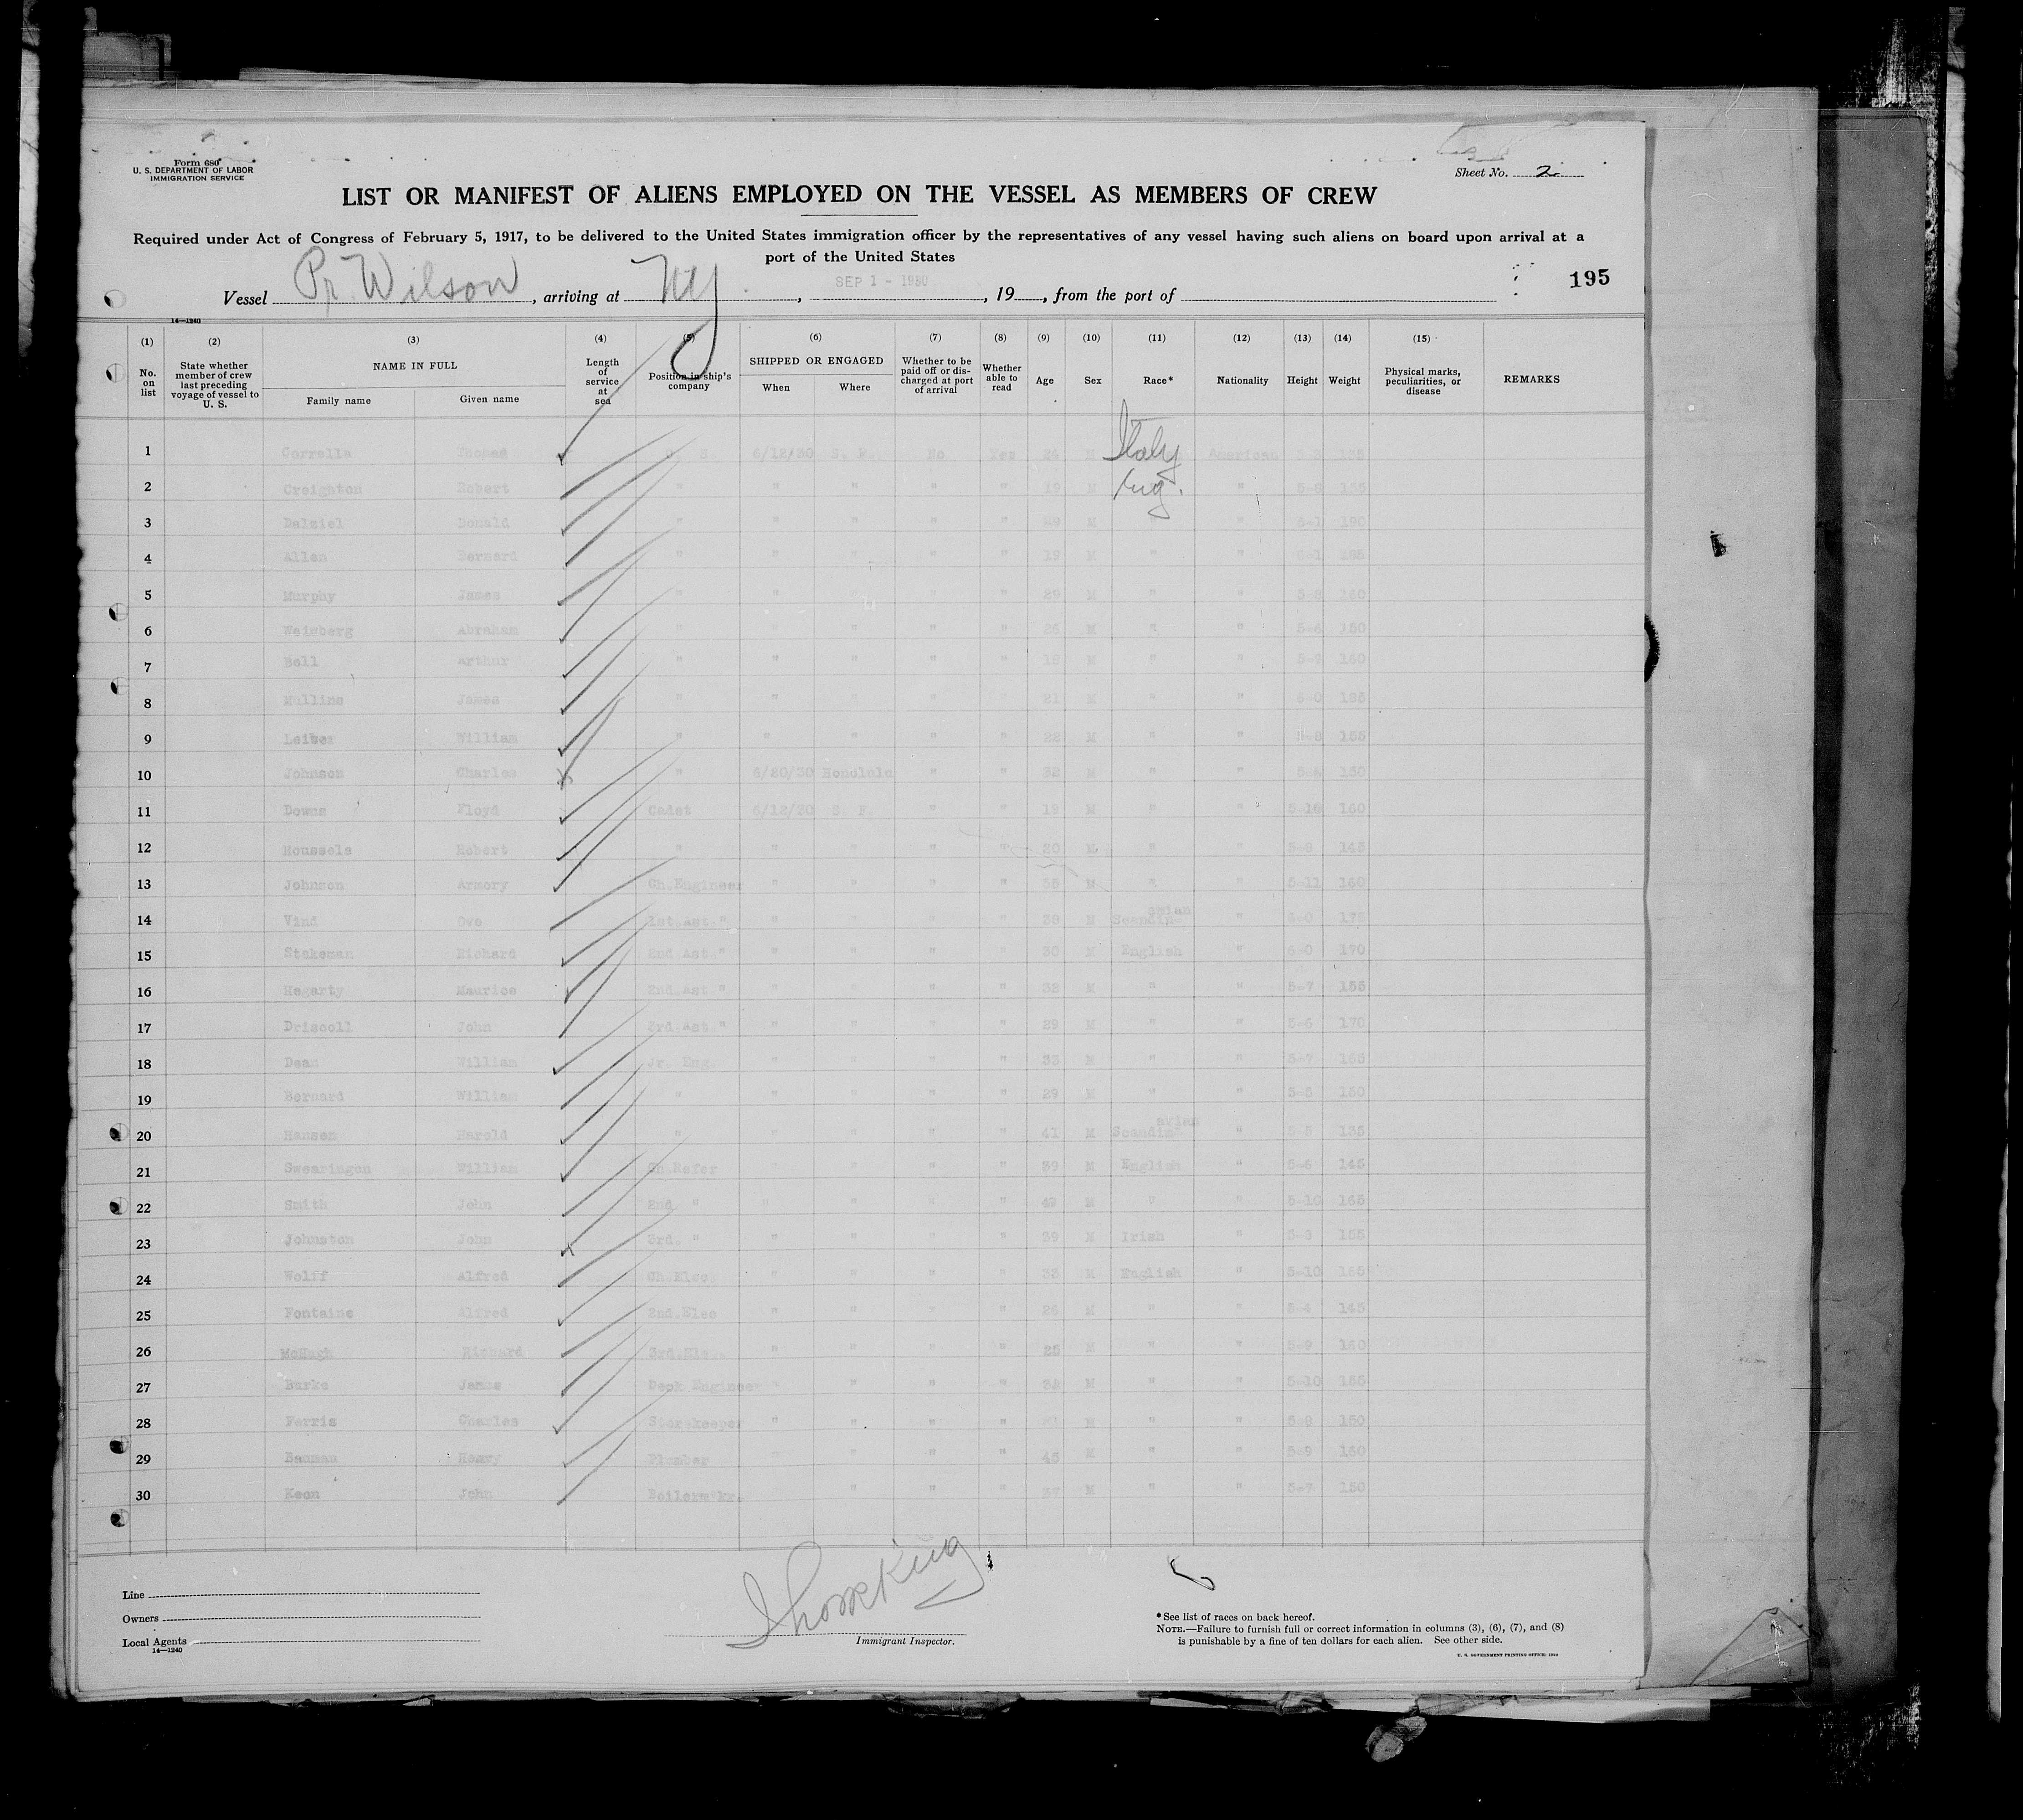 Form 680
U. S. DEPARTMENT OF LABOR
IMMIGRATION SERVICE
Sheet No. 2
LIST OR MANIFEST OF ALIENS EMPLOYED ON THE VESSEL AS MEMBERS OF CREW
Required under Act of Congress of February 5, 1917, to be delivered to the United States immigration officer by the representatives of any vessel having such aliens on board upon arrival at a
port of the United States
195
Vessel Pr. Wilson, arriving at NY, SEP 1 - 1930, 19, from the port of
14—1240
(1) (2) (3) (4) (5) (6) (7) (8) (9) (10) (11) (12) (13) (14) (15)
No. on list State whether member of crew last preceding voyage of vessel to U. S. NAME IN FULL Family name Given name Length of service at sea Position in ship's company SHIPPED OR ENGAGED When Where Whether to be paid off or discharged at port of arrival Whether able to read Age Sex Race* Nationality Height Weight Physical marks, peculiarities, or disease REMARKS
1 Thomas 6/12/30 S. F. No Yes 24 M Italy American
2 Creighton Robert " " " " " 19 M Eng. " 155
3 Dalziel Donald " " " " " M " " 6-1 190
4 Allen Bernard " " " " " 19 M " " 6-1
5 Murphy James " " " " " 29 M " " 160
6 Weinberg Abraham " " " " " 26 M " " 5-6 150
7 Bell Arthur " " " " " M " " 160
8 Mullins James " " " " 21 M " " 6-0
9 Leiber William " " " " " 22 M " " 5-8 155
10 Johnson Charles " 6/20/30 Honolulu " " 32 M " " 150
11 Downs Floyd Cadet 6/12/30 S. F. " " 19 M " " 5-10 160
12 Robert " " " " " 20 M " " 145
13 Johnson Armory Ch.Engineer " " " " M " " 5-11 160
14 Vind Ove 1st.Ast." " " " " M Scandinavian " 6-0 175
15 Stakeman Richard 2nd.Ast." " " " " 30 M English " 6-0 170
16 Hegarty Maurice 2nd.Ast." " " " " 32 M " " 5-7 155
17 Driscoll John 3rd.Ast." " " " " 29 M " " 5-6 170
18 Dean William Jr. Eng. " " " " 33 M " " 5-7 165
19 Bernard William " " " " " 29 M " " 5-5 150
20 Hansen Harold " " " " " 41 M Scandinavian " 5-5 135
21 Swearingen William Ch.Refer " " " " 39 M English " 5-6 145
22 Smith John 2nd. " " " " " M " " 5-10 165
23 Johnston John 3rd. " " " " " 39 M Irish " 155
24 Wolff Alfred Ch.Elec " " " " M English " 5-10 165
25 Fontaine Alfred 2nd.Elec " " " " 26 M " " 5-4 145
26 McHugh Richard " " " " 25 M " " 5-9 160
27 Burke James Deck Engineer " " " " M " " 5-10 155
28 Ferris Charles Storekeeper " " " " M " " 150
29 Plumber " " " 45 M " " 5-9 160
30 Keon John " " " 37 M " " 5-7 150
Line
Owners
Local Agents
14—1240
Immigrant Inspector.
*See list of races on back hereof.
NOTE.—Failure to furnish full or correct information in columns (3), (6), (7), and (8)
is punishable by a fine of ten dollars for each alien. See other side.